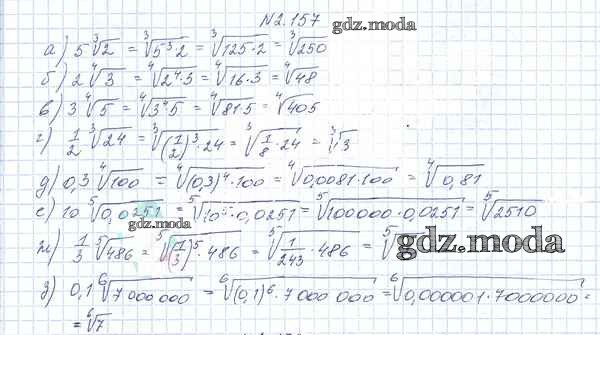 №2.157 gdz.moda
а) 5∛2 = ∛(5³·2) = ∛(125·2) = ∛250
б) 2∜3 = ∜(2⁴·3) = ∜(16·3) = ∜48
в) 3∜5 = ∜(3⁴5) = ∜(81·5) = ∜405
г) 1/2 ∛24 = ∛((1/2)³·24) = ∛(1/8·24) = ∛3
д) 0,3∜100 = ∜((0,3)⁴·100) = ∜(0,0081·100) = ∜0,81
е) 10 ⁵√0,0251 = ⁵√(10⁵·0,0251) = ⁵√(100000·0,0251) = ⁵√2510
gdz.moda
ж) 1/3 ⁵√486 = ⁵√((1/3)⁵·486) = ⁵√(1/243·486) = ⁵√
gdz.moda
з) 0,1 ⁶√7000000 = ⁶√((0,1)⁶·7000000) = ⁶√(0,000001·7000000) =
= ⁶√7